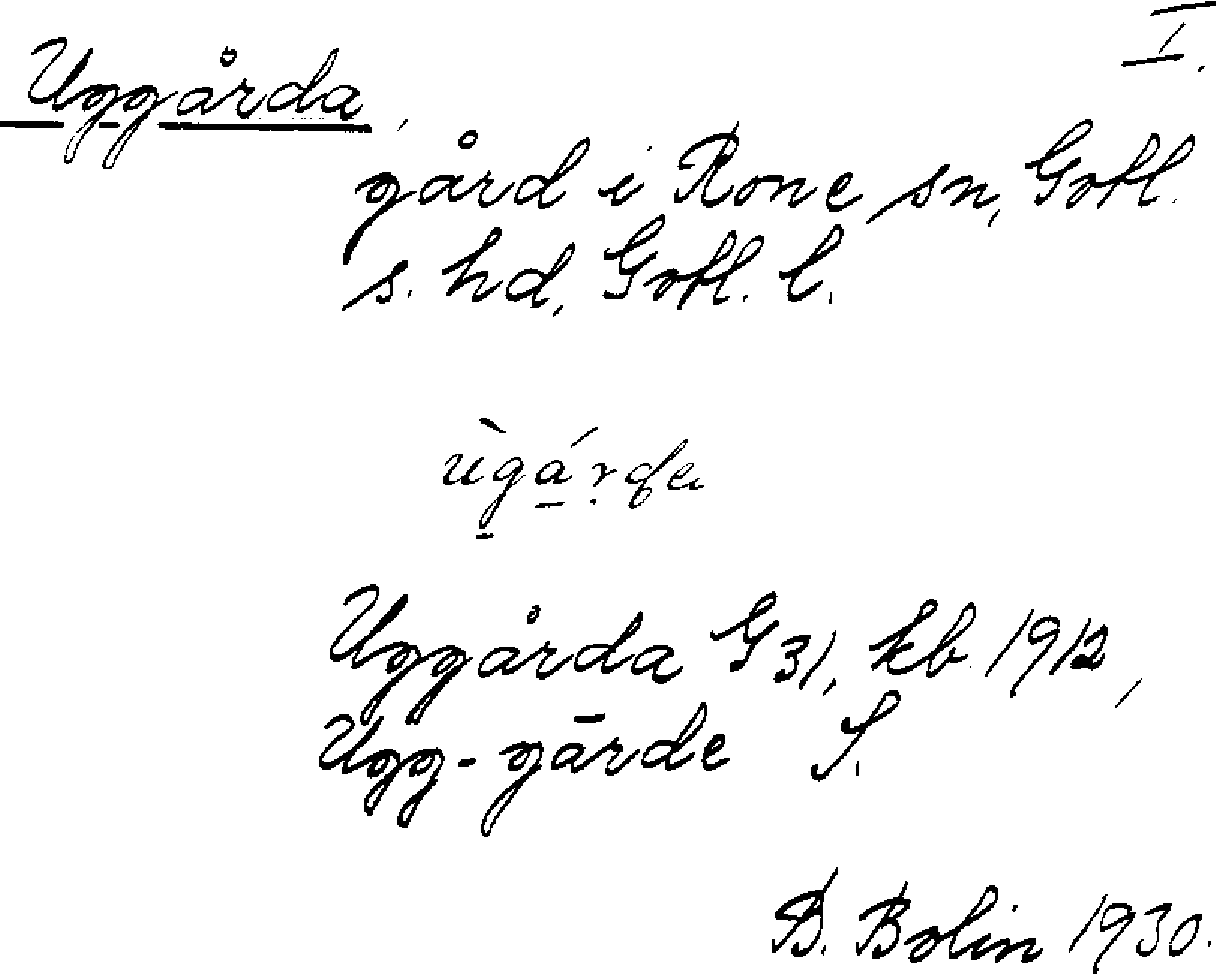 I.
Uggårda,
gård i Rone sn, Gotl.
s. hd, Gotl. l.
Uggårda G 31, kb. 1912,
Ugg-gārde S.
B. Bolin 1930.